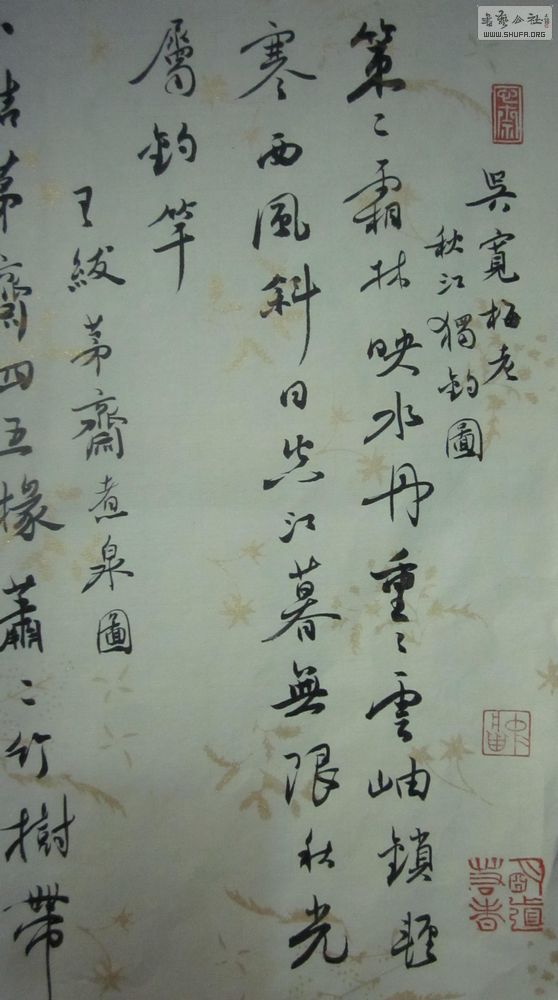 书艺公社
WWW.SHUFA.ORG
吳寬梅老
秋江獨釣圖
策〻霜林映水丹重〻雲岫鎖輕
寒西風斜日吳江暮無限秋光
屬釣竿
王紱茅齋煮泉圖
結茅齋四五椽蕭〻竹樹帶